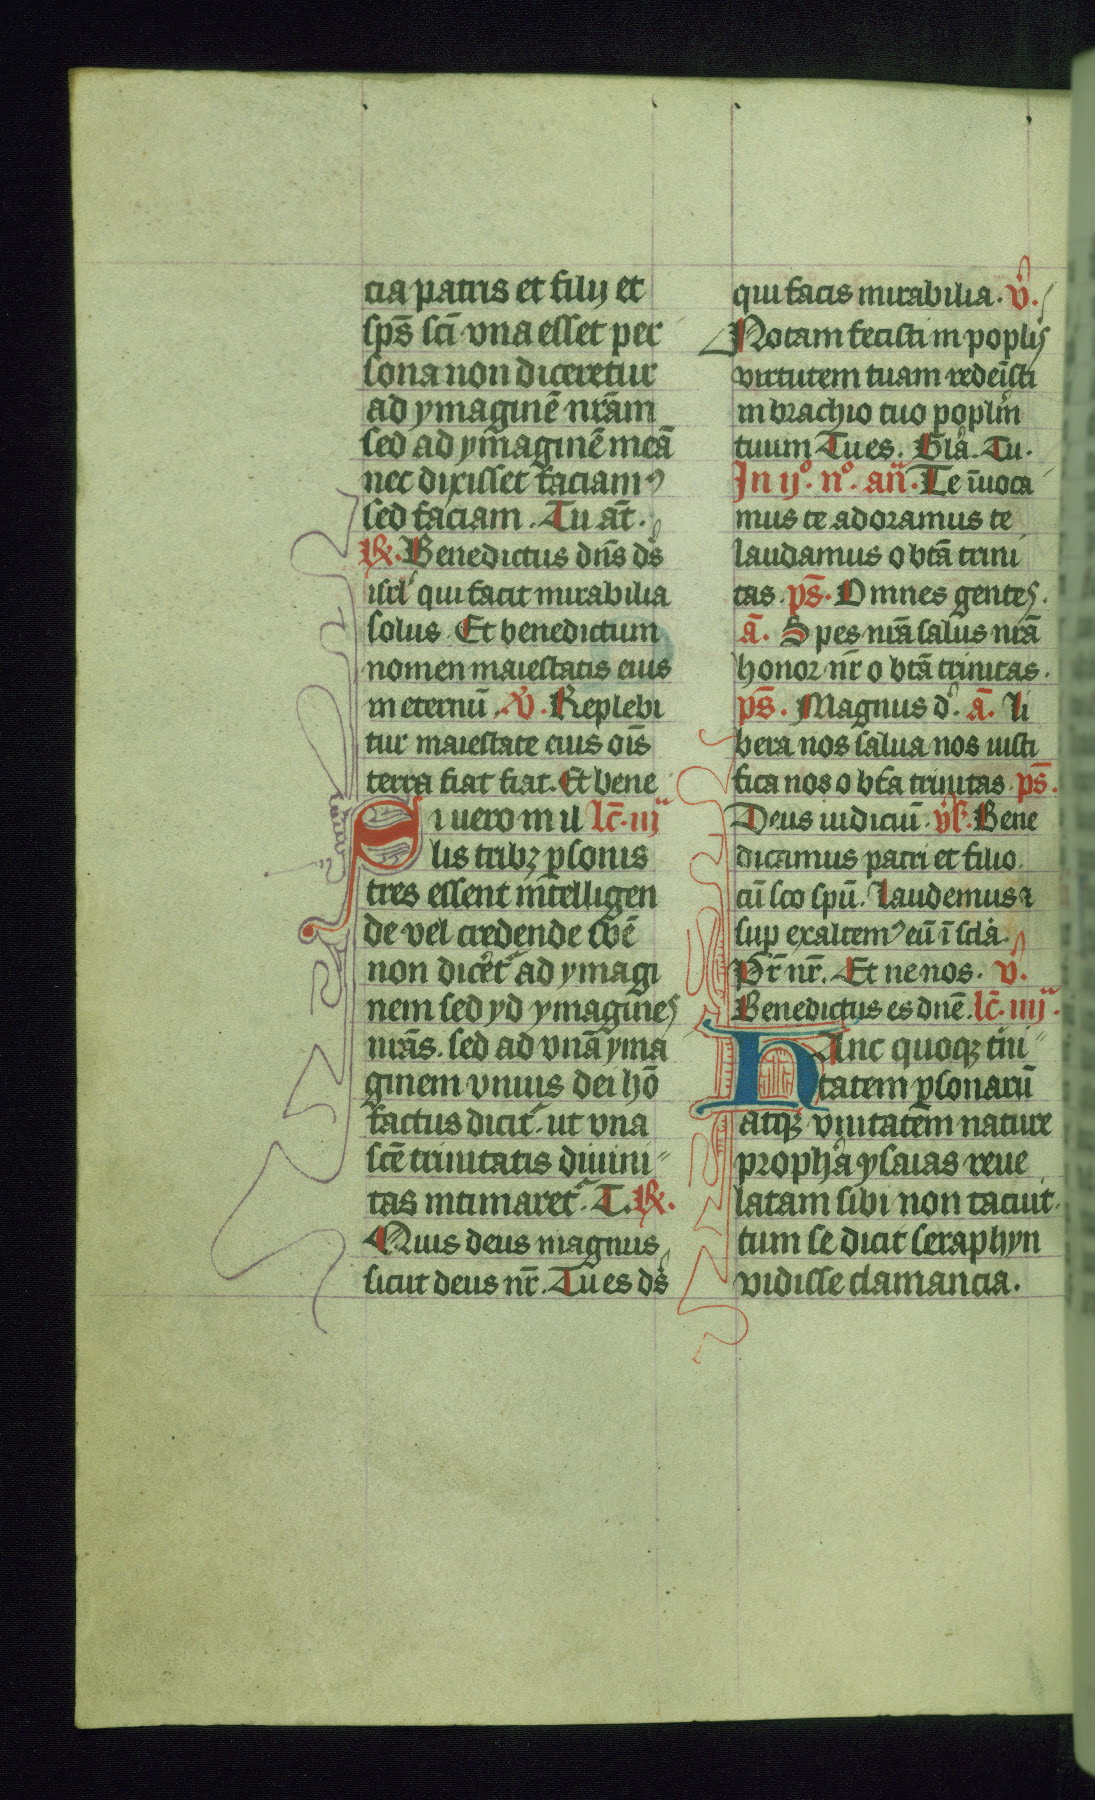 cia patris et filij et
sp̄s sc̄i vna esset per
sona non diceretur
ad ymaginē nr̄am
sed ad ymaginē meā
nec dixisset faciamꝰ
sed faciam. Tu āt.
℟. Benedictus dn̄s ds̄
isrl̄ qui facit mirabilia
solus Et benedictum
nomen maiestatis eius
in eternū. ℣. Replebi
tur maiestate eius oīs
terra fiat fiat. Et bene
Si uero in il lc̄. iij
lis tribꝫ ꝑsonis
tres essent intelligen
de vel credende
non ad ymagi
nem sed yd ymagines
nr̄as. sed ad vnā yma
ginem vnius dei hō
factus dicit᷑. ut vna
sc̄e trinitatis diuini
tas intimaret᷑. T. ℟.
Quis deus magnus
sicut deus nr̄. Tu es ds̄
qui facis mirabilia. v̄.
Notam fecisti in poplis
virtutem tuam redeīsti
in brachio tuo poplm̄
tuum Tu es. Glā. Tu.
In ij° n° an̄. Te īuoca
mus te adoramus te
laudamus o btā trini
tas ps̄. Omnes gentes.
ā. Spes nr̄a salus nr̄a
honor nr̄ o btā trinitas.
ps̄. Magnus d. ā. Li
bera nos salua nos iusti
fica nos o btā trinitas ps̄.
Deus iudiciū. Bene
dicamus patri et filio.
cū sco spū. Laudemus ⁊
sup exaltemꝰ eū ī sclā
Pr̄ nr̄. Et ne nos. v̄.
Benedictus es dnē. lc̄. iiij.
Hanc quoqꝫ tīni
tatem ꝑsonarū
atqꝫ vnitatem nature
propha ysaias reue
latam sibi non tacuit.
tum se dicit seraphyn
vidisse clamancia.